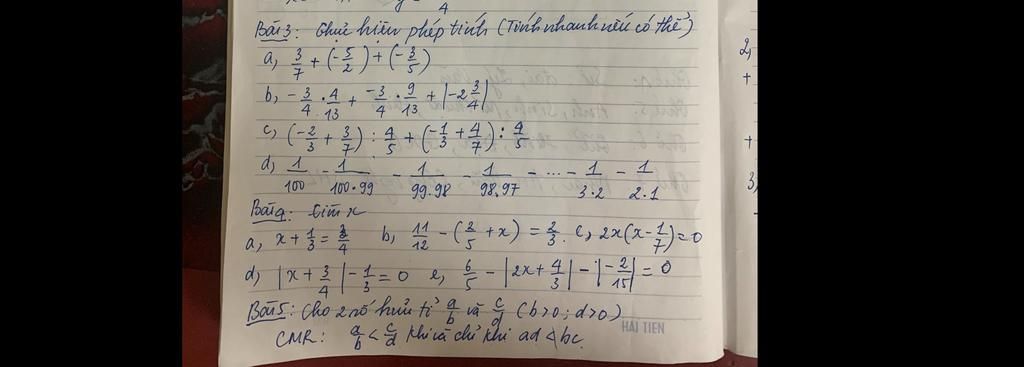 4
Bài 3: Thực hiện phép tính (Tính nhanh nếu có thể)
a, 3/7 + (-5/2) + (-3/5)
b, -3/4 . 4/13 + -3/4 . 9/13 + |-2 3/4|
c, (-2/3 + 3/7) : 4/5 + (-1/3 + 4/7) : 4/5
d, 1/100 - 1/100.99 - 1/99.98 - 1/98.97 - ... - 1/3.2 - 1/2.1
Bài 4: Tìm x
a, x + 1/3 = 3/4 b, 11/12 - (2/5 + x) = 2/3. c, 2x(x - 1/7) = 0
d, |x + 3/4| - 1/3 = 0 e, 6/5 - |2x + 4/3| - |-2/15| = 0
Bài 5: Cho 2 số hữu tỉ a/b và c/d (b>0; d>0)
HẢI TIẾN
CMR: a/b < c/d khi và chỉ khi ad < bc.
2,
+
+
3,